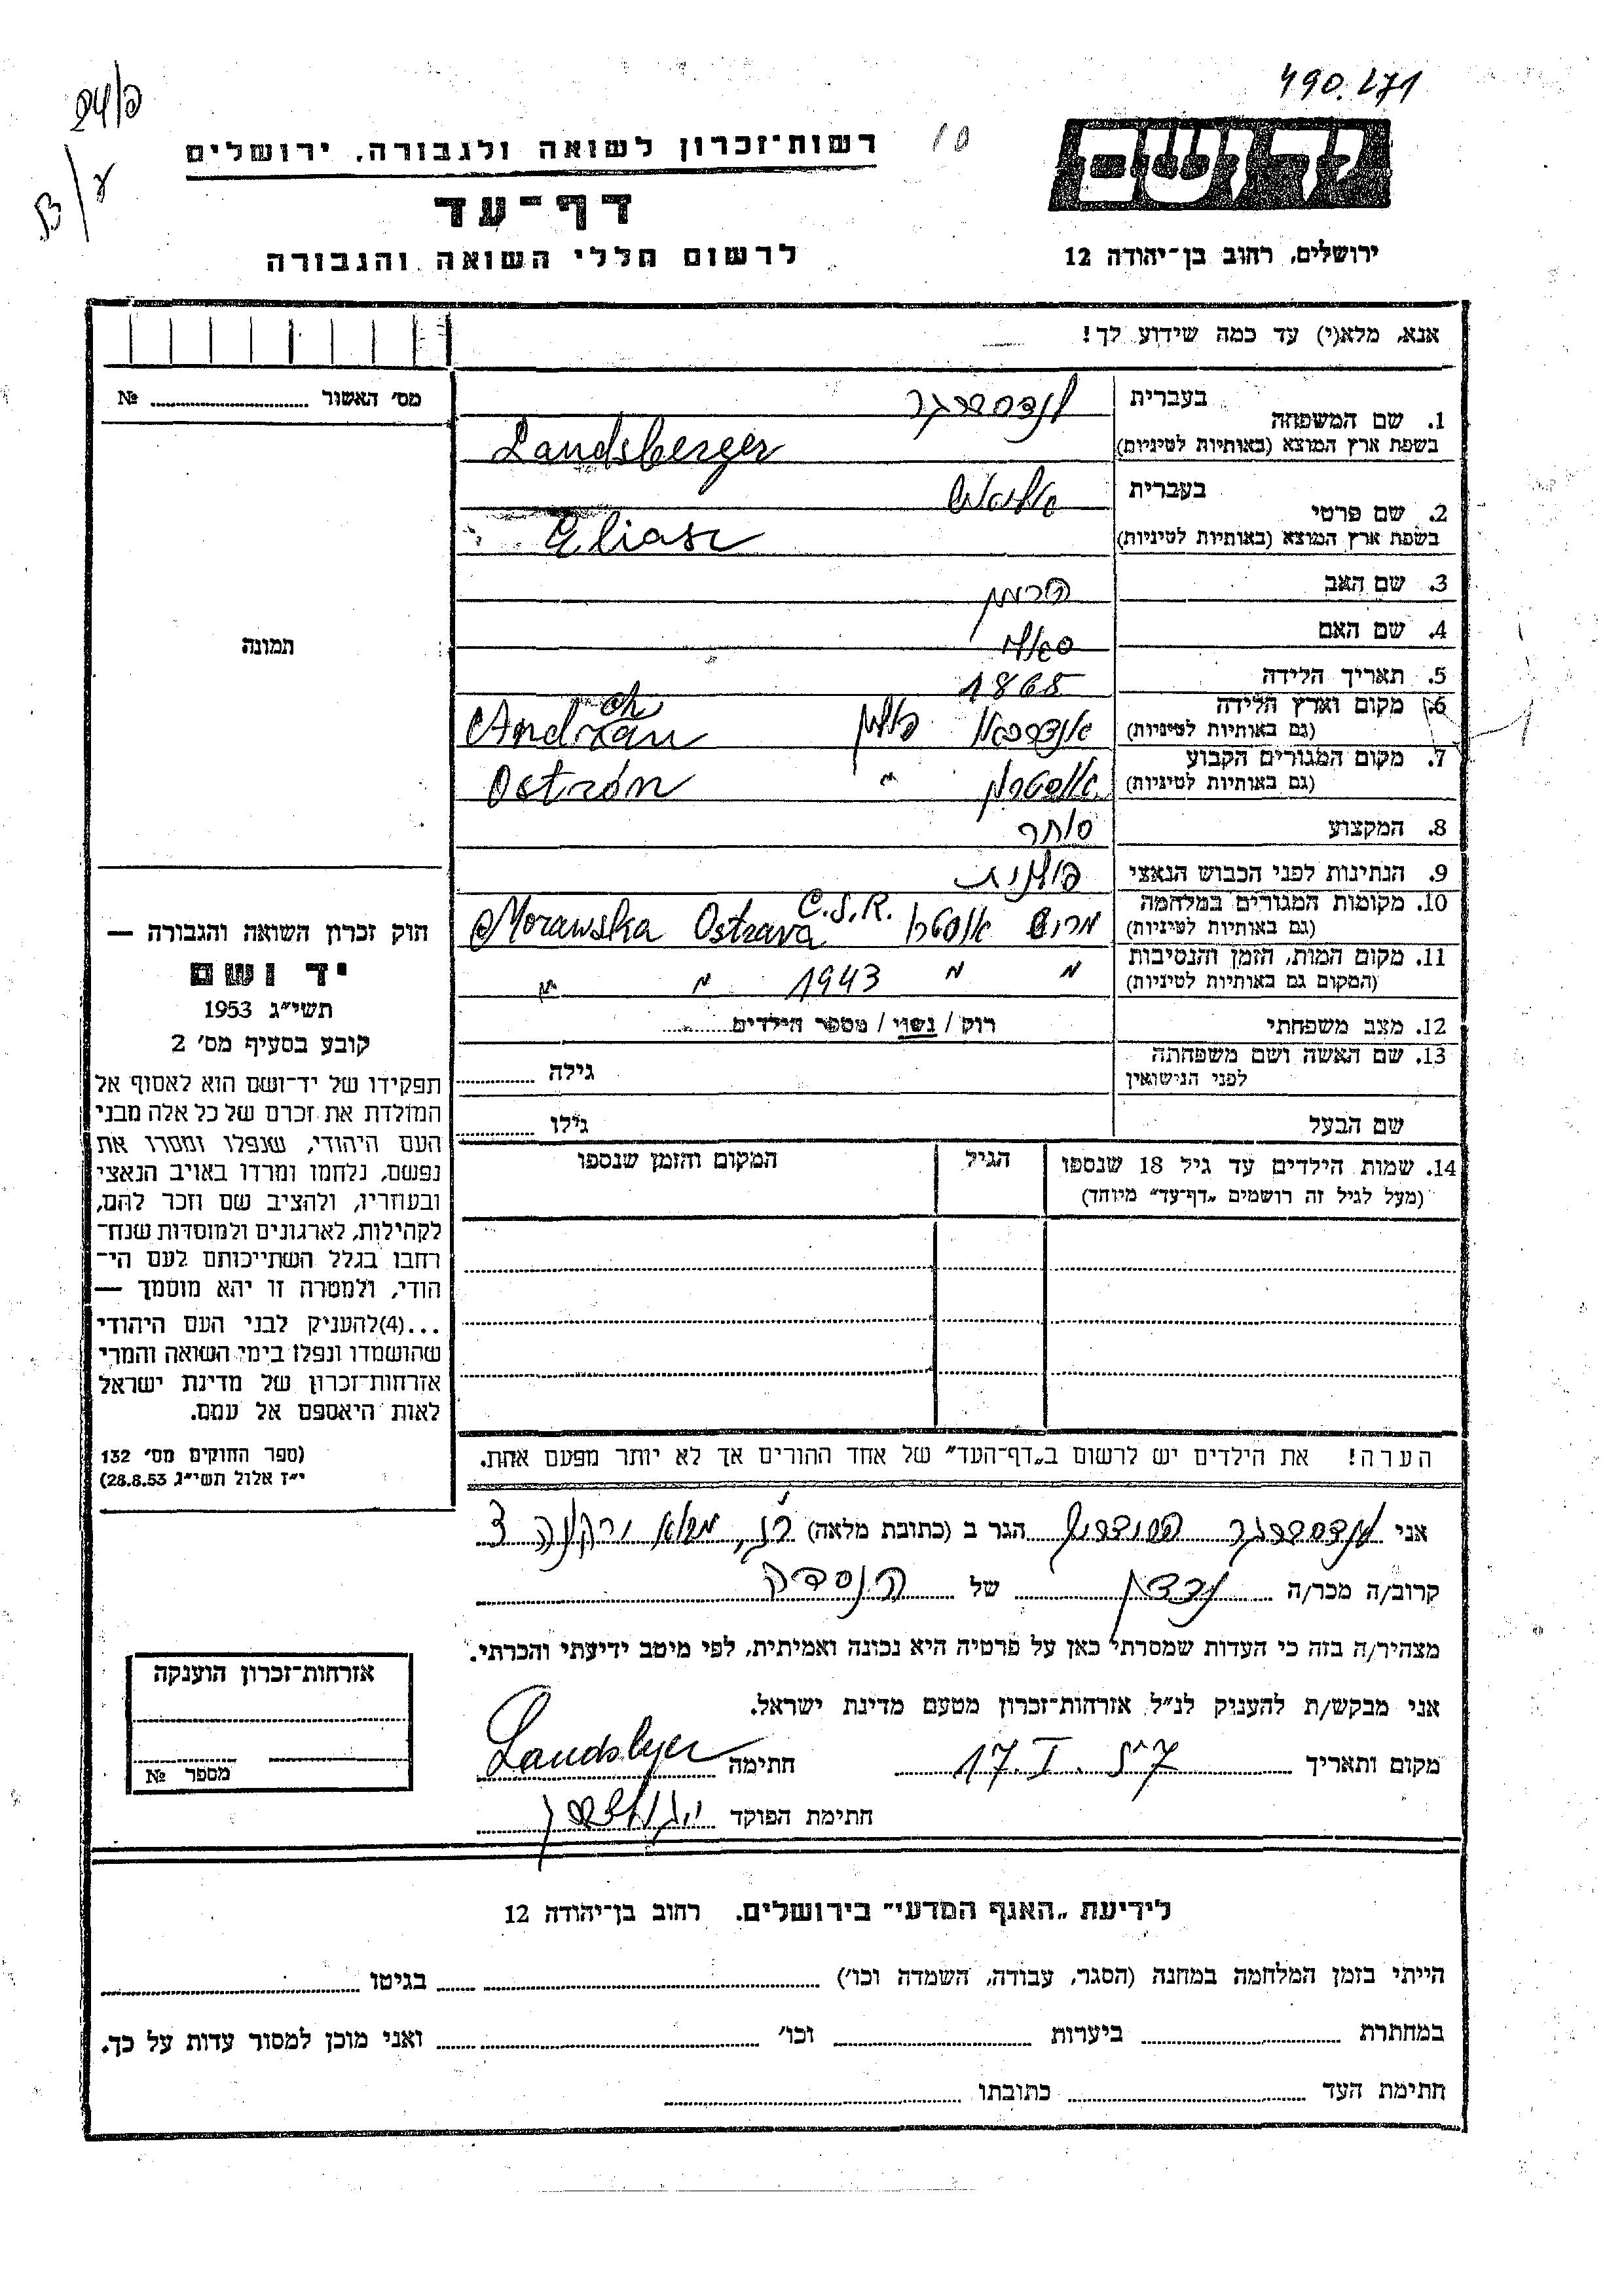 490.271
24/פ
רשות־זכרון לשואה ולגבורה, ירושלים
10
יד ושם
דף־עד
לרשום חללי השואה והגבורה
ירושלים, רחוב בן־יהודה 12
אנא, מלא(י) עד כמה שידוע לך!
מס׳ האשור № 
1. שם המשפחה
בעברית לנדסברגר
בשפת ארץ המוצא (באותיות לטיניות) Landsberger
2. שם פרטי
בעברית
בשפת ארץ המוצא (באותיות לטיניות) Eliasz
3. שם האב הרמן
4. שם האם
תמונה
5. תאריך הלידה 1865
6. מקום וארץ הלידה
(גם באותיות לטיניות) פולין
7. מקום המגורים הקבוע
(גם באותיות לטיניות) "
8. המקצוע סוחר
9. הנתינות לפני הכבוש הנאצי פולנית
10. מקומות המגורים במלחמה
(גם באותיות לטיניות) C.S.R. Morawska Ostrava
11. מקום המות, הזמן והנסיבות
(המקום גם באותיות לטיניות) " " 1943 " "
12. מצב משפחתי רוק / נשוי / מספר הילדים
13. שם האשה ושם משפחתה
לפני הנישואין
גילה
שם הבעל גילו
חוק זכרון השואה והגבורה —
יד ושם
תשי״ג 1953
קובע בסעיף מס׳ 2
תפקידו של יד־ושם הוא לאסוף אל
המולדת את זכרם של כל אלה מבני
העם היהודי, שנפלו ומסרו את
נפשם, נלחמו ומרדו באויב הנאצי
ובעוזריו, ולהציב שם וזכר להם,
לקהילות, לארגונים ולמוסדות שנח־
רחבו בגלל השתייכותם לעם הי־
הודי, ולמטרה זו יהא מוסמך —
...(4)להעניק לבני העם היהודי
שהושמדו ונפלו בימי השואה והמרי
אזרחות־זכרון של מדינת ישראל
לאות היאספם אל עמם.
(ספר החוקים מס׳ 132
י״ז אלול תשי״ג 28.8.53)
14. שמות הילדים עד גיל 18 שנספו הגיל המקום והזמן שנספו
(מעל לגיל זה רושמים „דף־עד״ מיוחד)
הערה! את הילדים יש לרשום ב„דף־העד״ של אחד ההורים אך לא יותר מפעם אחת.
אני לנדסברגר הגר ב (כתובת מלאה)
קרוב/ה מכר/ה נכדן של הנספה
מצהיר/ה בזה כי העדות שמסרתי כאן על פרטיה היא נכונה ואמיתית, לפי מיטב ידיעתי והכרתי.
אני מבקש/ת להעניק לנ״ל אזרחות־זכרון מטעם מדינת ישראל.
מקום ותאריך 17.I. חתימה
חתימת הפוקד
אזרחות־זכרון הוענקה
מספר №
לידיעת „האגף המדעי״ בירושלים. רחוב בן־יהודה 12
הייתי בזמן המלחמה במחנה (הסגר, עבודה, השמדה וכו׳) בגיטו
במחתרת ביערות וכו׳ ואני מוכן למסור עדות על כך.
חתימת העד כתובתו